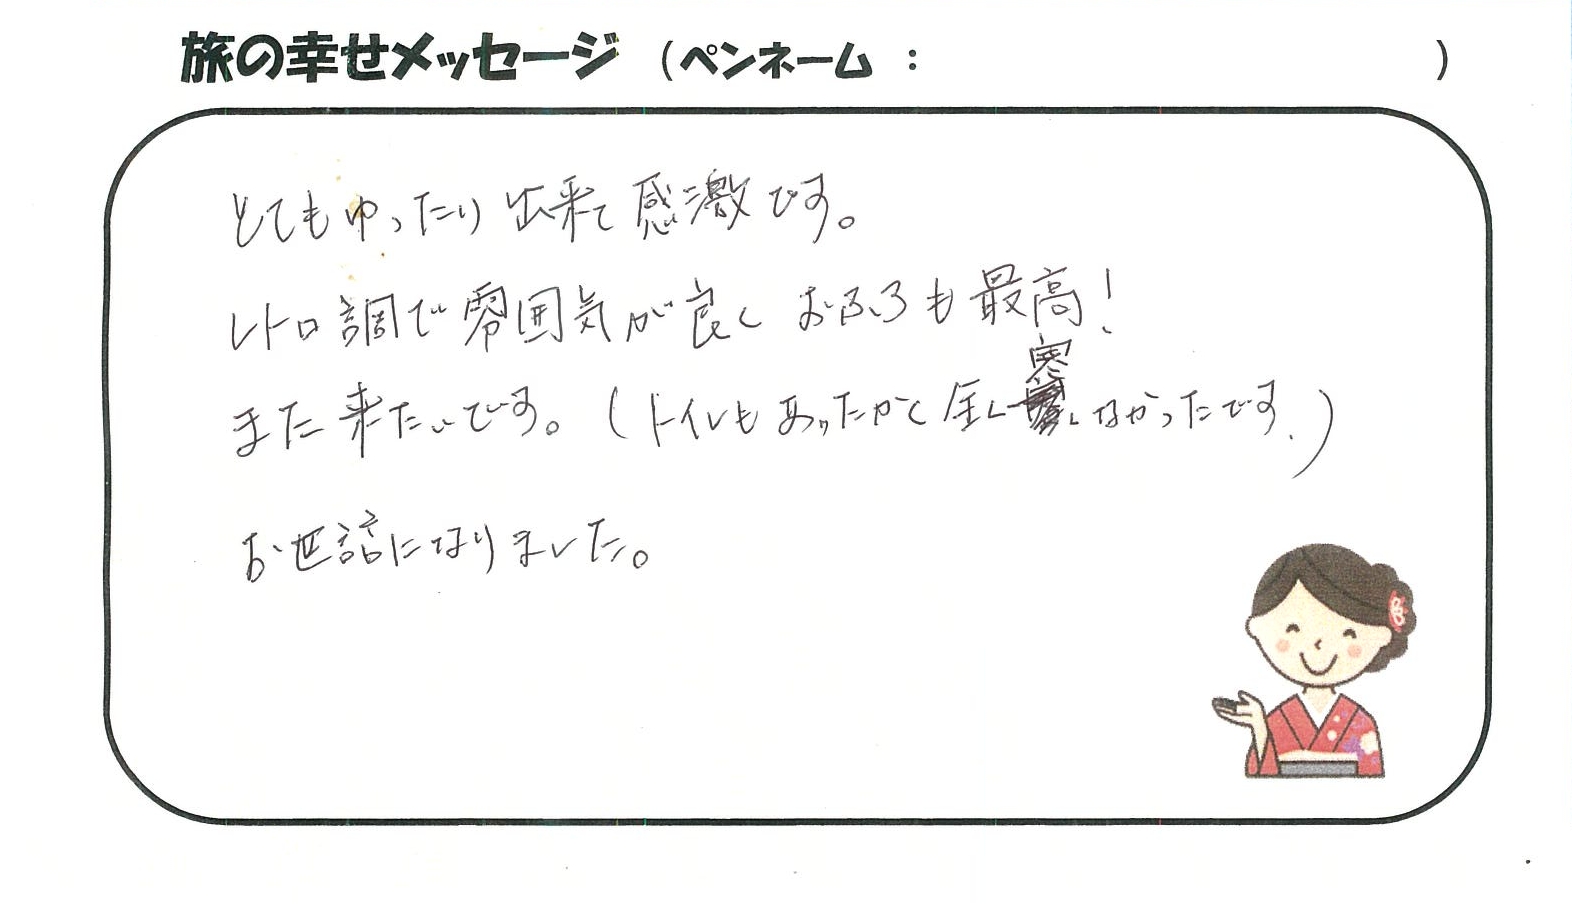 旅の幸せメッセージ (ペンネーム : )
とてもゆったり出来て感激です。
レトロ調で雰囲気が良くおふろも最高!
また来たいです。(トイレもあったかく全く寒くなかったです.)
お世話になりました。